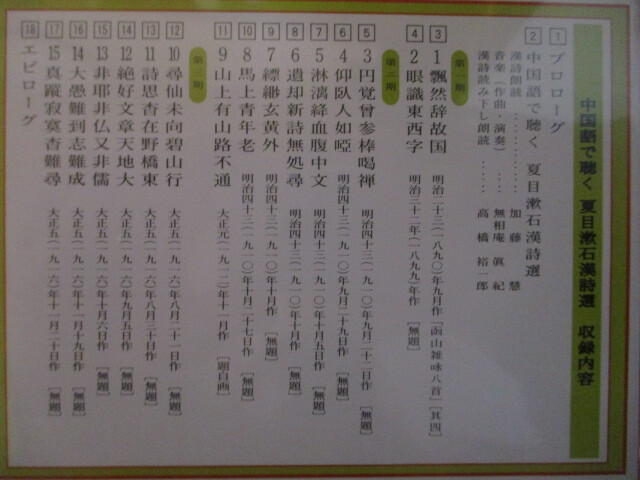 中国語で聴く 夏目漱石漢詩選 収録内容
1 プロローグ
2 中国語で聴く 夏目漱石漢詩選
漢詩朗読 加藤 慧
音楽(作曲・演奏) 無相庵 眞紀
漢詩読み下し朗読 高橋 裕一郎
第一期
3 1 飄然辞故国 明治二十三(一八九〇)年九月作「函山雑咏八首」[其四]
4 2 眼識東西字 明治三十二年(一八九九)年作 [無題]
第二期
5 3 円覚曾参棒喝禅 明治四十三(一九一〇)年九月二十二日作 [無題]
6 4 仰臥人如啞 明治四十三(一九一〇)年九月二十九日作 [無題]
7 5 淋漓絳血腹中文 明治四十三(一九一〇)年十月五日作 [無題]
8 6 遺却新詩無処尋 明治四十三(一九一〇)年十月作 [無題]
9 7 縹緲玄黄外 明治四十三(一九一〇)年十月作 [無題]
10 8 馬上青年老 明治四十三(一九一〇)年十月二十七日作 [無題]
11 9 山上有山路不通 大正元(一九一二)年十一月作 [題自画]
第三期
12 10 尋仙未向碧山行 大正五(一九一六)年八月二十一日作 [無題]
13 11 詩思杳在野橋東 大正五(一九一六)年八月三十日作 [無題]
14 12 絶好文章天地大 大正五(一九一六)年九月五日作 [無題]
15 13 非耶非仏又非儒 大正五(一九一六)年十月六日作 [無題]
16 14 大愚難到志難成 大正五(一九一六)年十一月十九日作 [無題]
17 15 真蹤寂寞杳難尋 大正五(一九一六)年十一月二十日作 [無題]
18 エピローグ